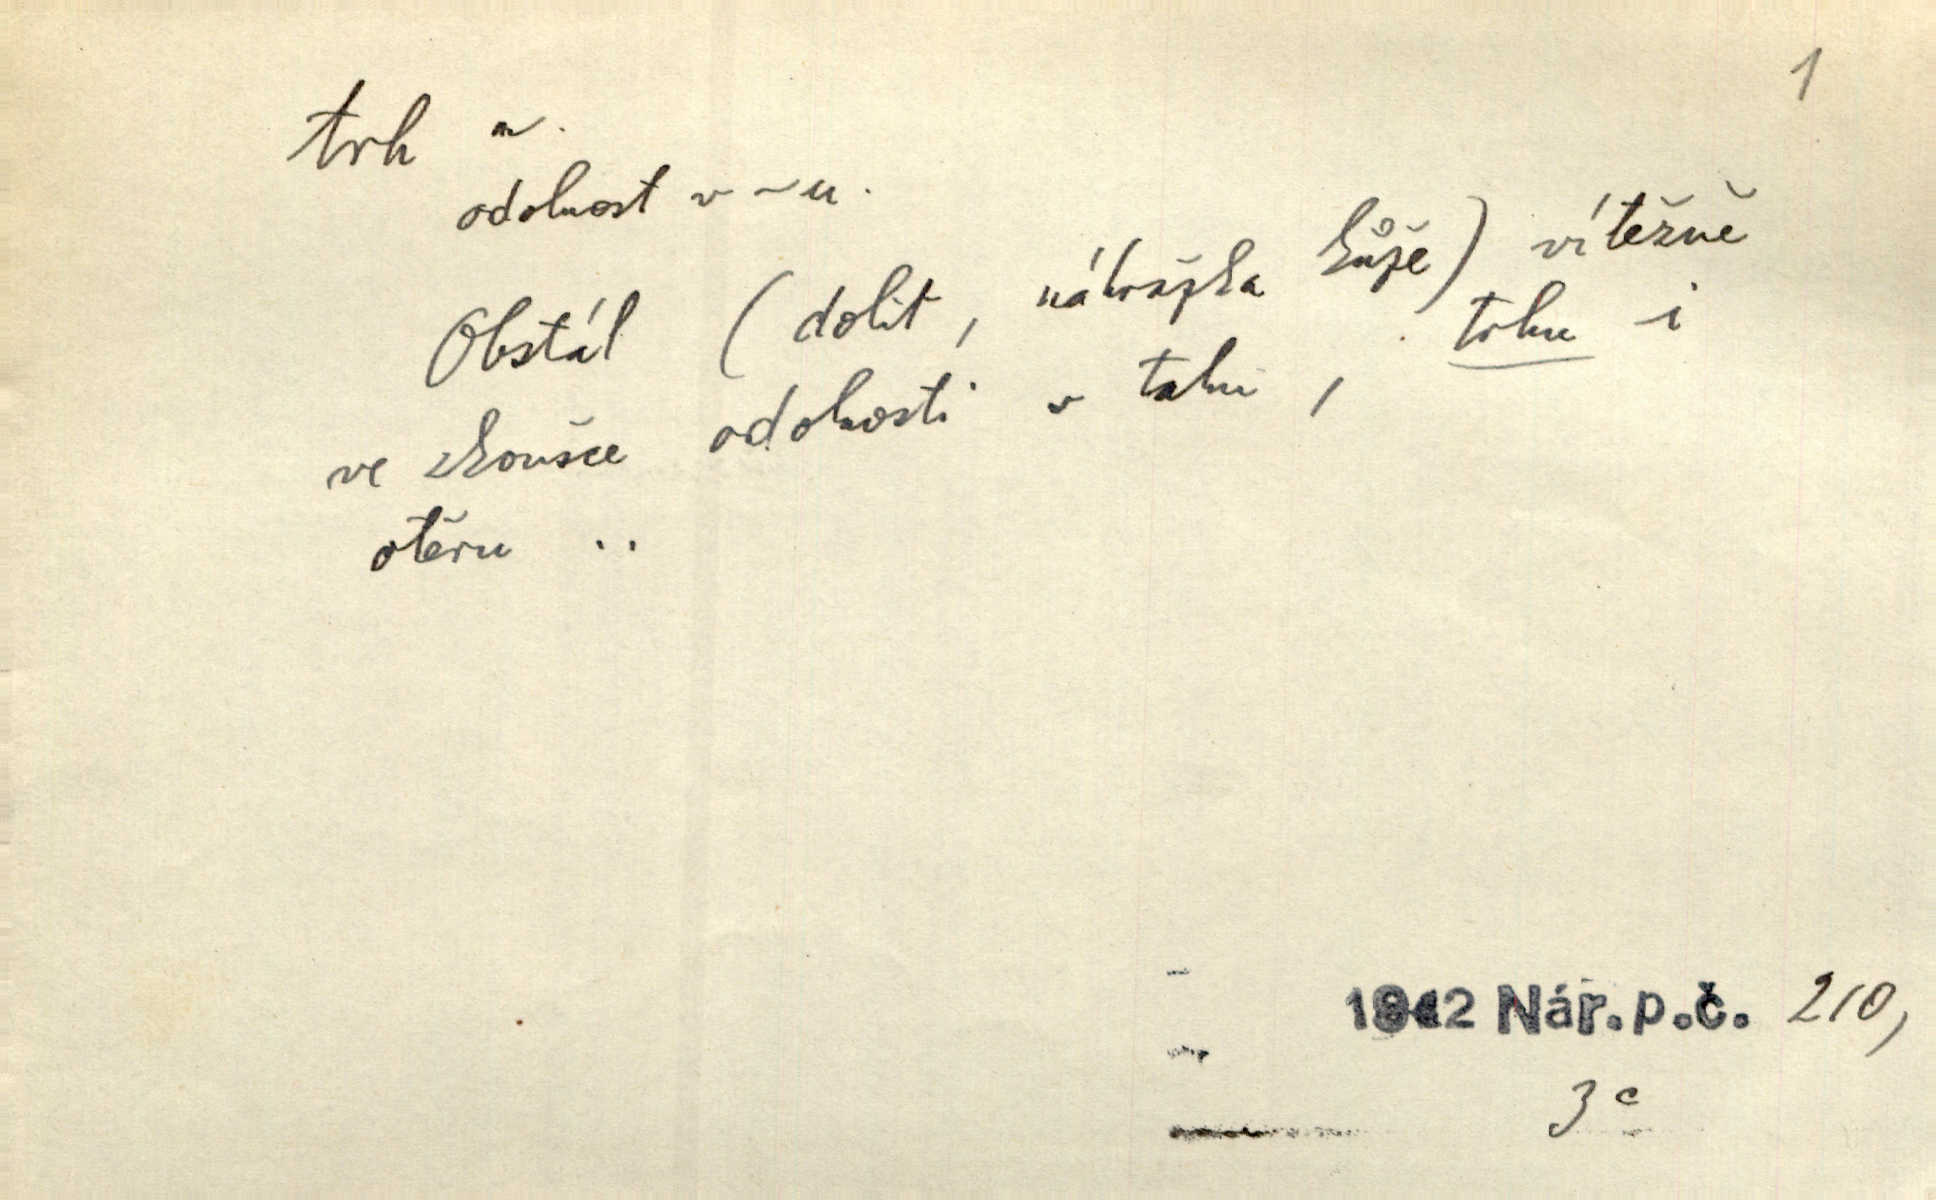 1
trh m.
odolnost v ~u.
Obstál (dolit, náhražka kůže) vítězně
ve zkoušce odolnosti v tahu, trhu i
otěru ..
1942 Nár. p.č. 210,
3c